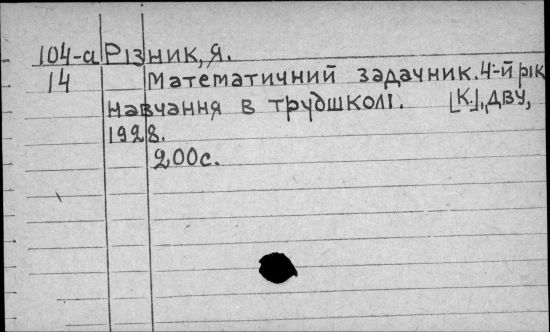 104-а Різник, Я.
14 Математичний задачник. 4-й рік
навчання в трудшколі. [К.], ДВУ,
1928.
200с.